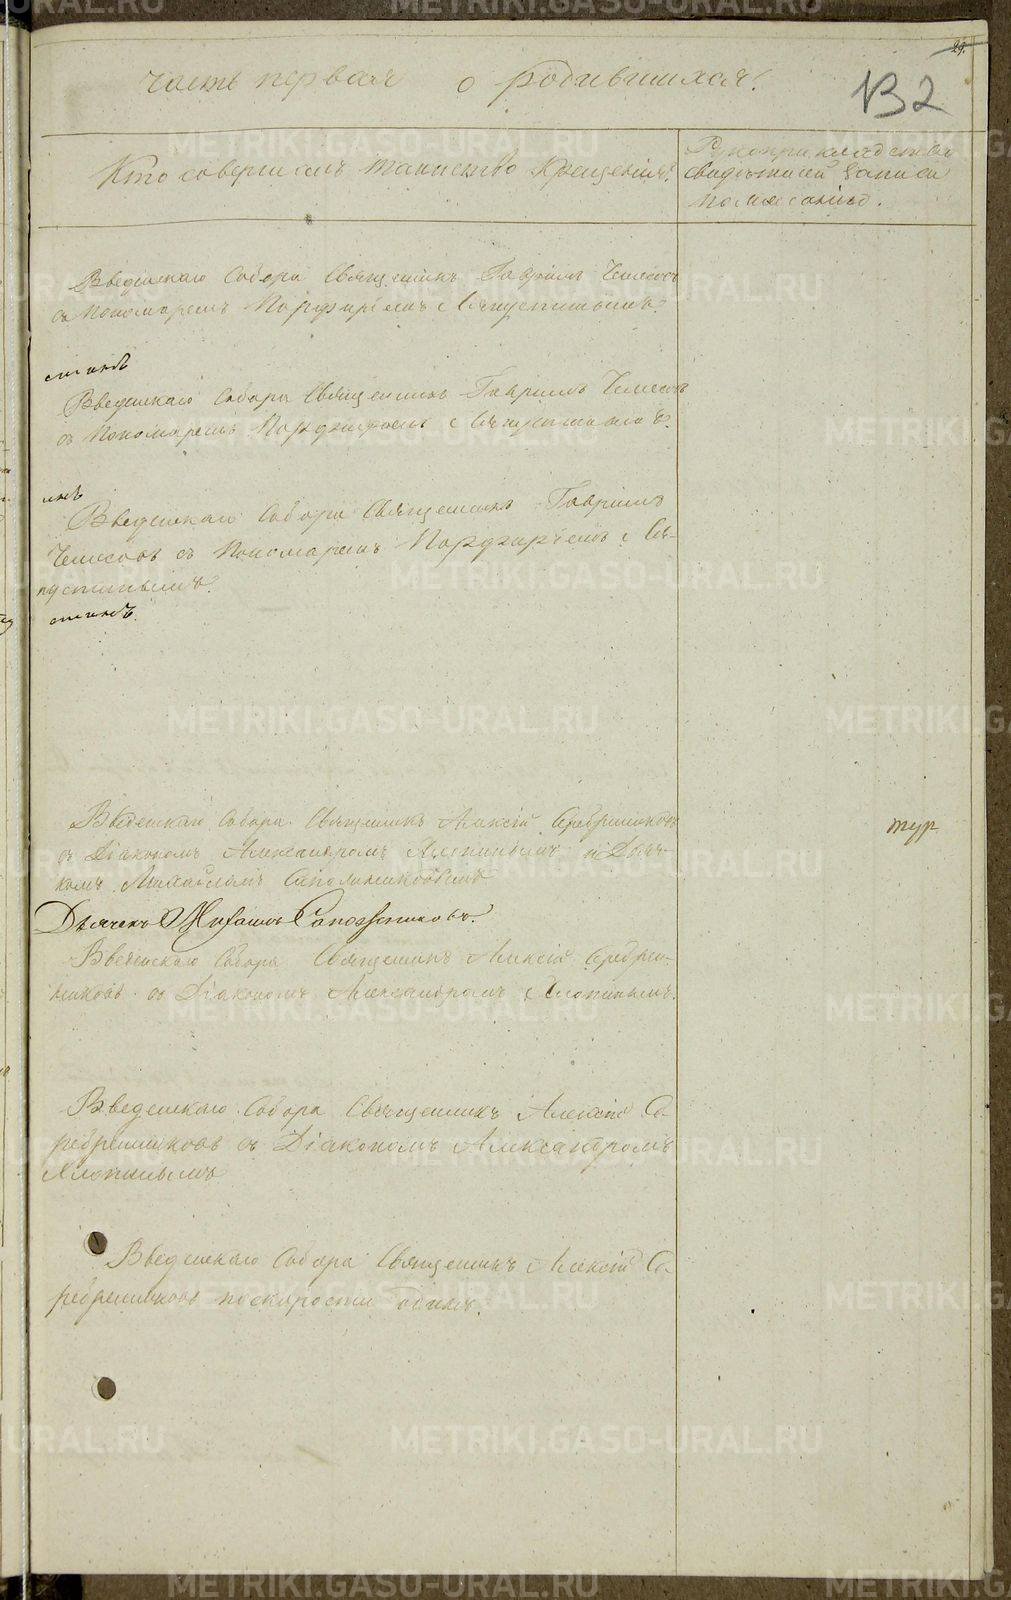 29.
132
часть первая о родившихся.
Кто совершалъ таинство крещенія.
Рукоприкладство
свидѣтелей записи
по желанію.
Введенскаго Собора Священникъ Гавріилъ
съ Пономаремъ Порфиріемъ
Введенскаго Собора Священникъ Гавріилъ
съ Пономаремъ Порфиріемъ
Введенскаго Собора Священникъ Гавріилъ
съ Пономаремъ Порфиріемъ
Введенскаго Собора Священникъ Алексій Серебренниковъ
съ Діакономъ Александромъ и Дьяч-
комъ Михаиломъ Сапожниковымъ
Дьячекъ Михаилъ Сапожниковъ.
Введенскаго Собора Священникъ Алексій Серебрен-
никовъ съ Діакономъ Александромъ
Введенскаго Собора Священникъ Алексій Се-
ребренниковъ съ Діакономъ Александромъ
Введенскаго Собора Священникъ Алексій Се-
ребренниковъ поскорости одинъ.
тур
METRIKI.GASO-URAL.RU